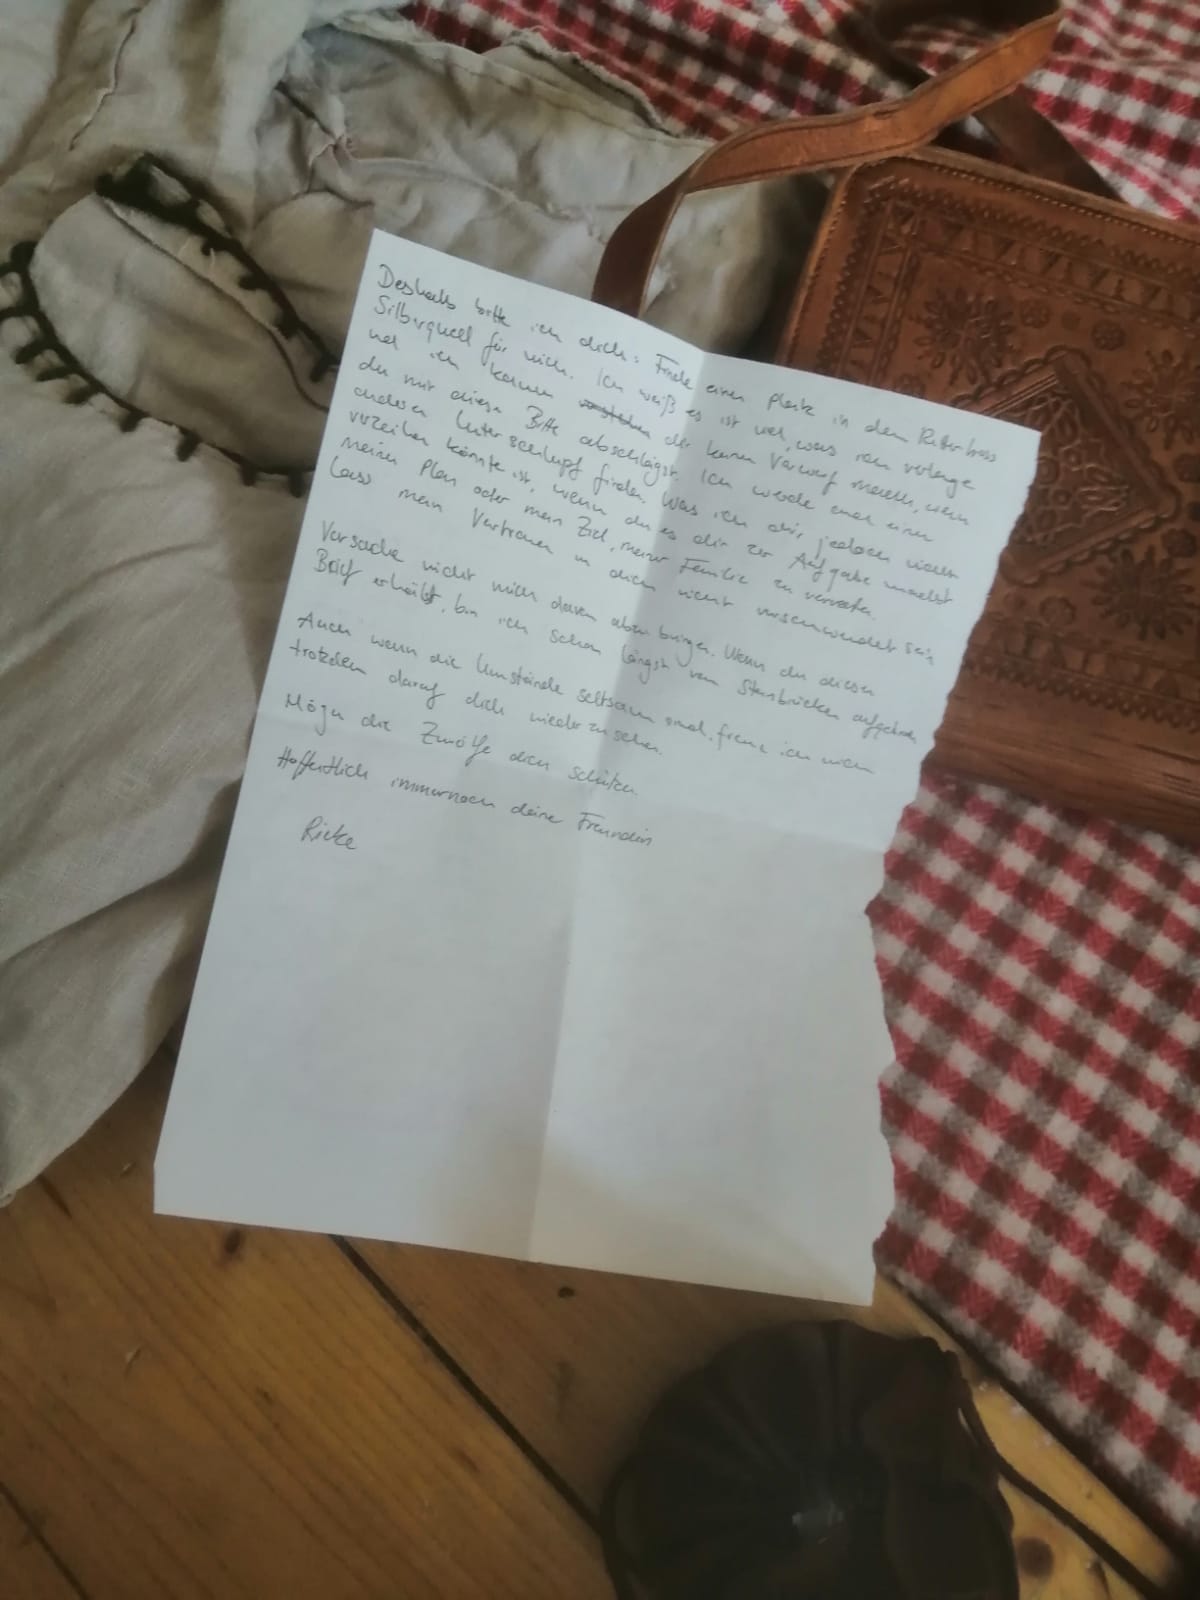 Deshalb bitte ich dich: Finde einen Platz in dem Rittertross
Silberquell für mich. Ich weiß es ist viel, was ich verlange
und ich kann dir keinen Vorwurf machen, wenn
du mir diese Bitte abschlägst. Ich werde einen
anderen Unterschlupf finden. Was ich dir jedoch nicht
verzeihen könnte ist, wenn du es dir zur Aufgabe machst
meinen Plan oder mein Ziel, meiner Familie zu verraten.
Lass mein Vertrauen in dich nicht verschwendet sein
Versuche nicht mich davon abzubringen. Wenn du diesen
Brief erhältst, bin ich schon längst von Steinbrücken aufgebrochen
Auch wenn die Umstände seltsam sind, freue ich mich
trotzdem darauf dich wieder zu sehen.
Mögen die Zwölfe dich schützen.
Hoffentlich immernoch deine Freundin
Rieke